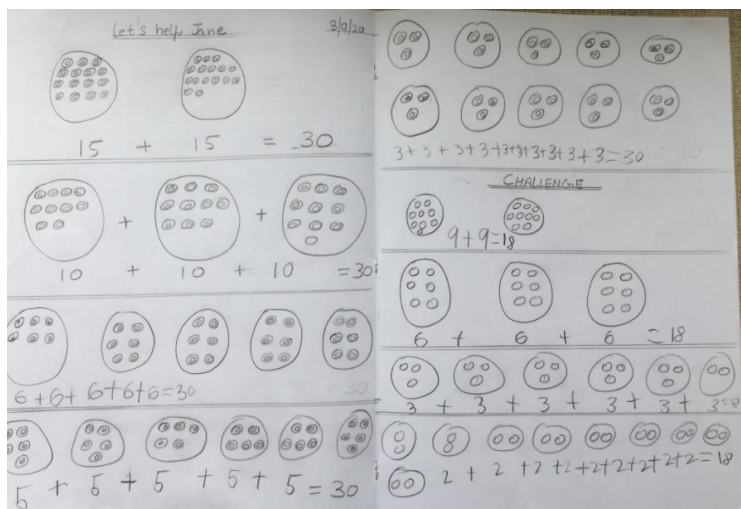 Let's help Jane
3/9/20
15 + 15 = 30
10 + 10 + 10 = 30
6+6+6+6+6=30
5 + 5 + 5 + 5 + 5 + 5 = 30
3+3+3+3+3+3+3+3+3+3=30
CHALLENGE
9+9=18
6 + 6 + 6 = 18
3 + 3 + 3 + 3 + 3 + 3=18
2 + 2 + 2 + 2+2+2+2+2+2=18